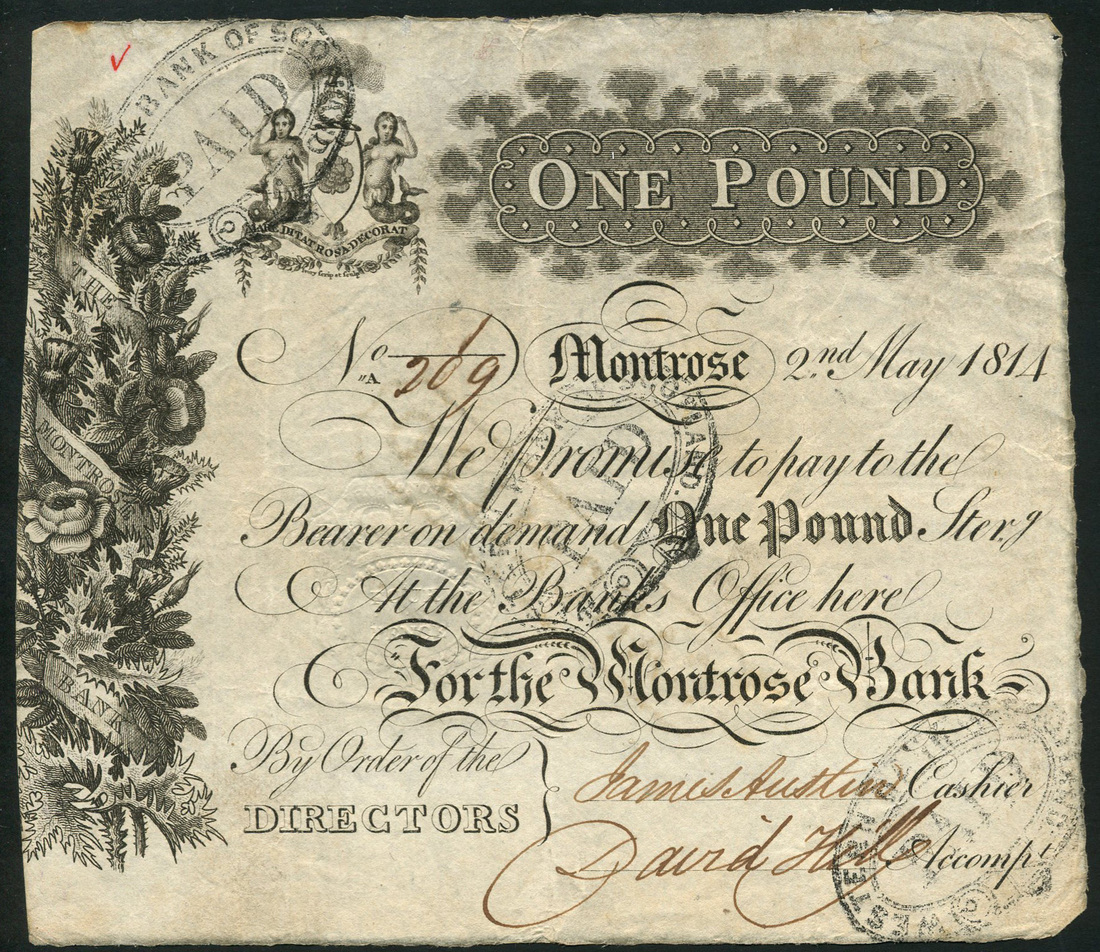 BANK OF SCO
PAID
ONE POUND
MARE DITAT ROSA DECORAT
THE
MONTROSE
BANK
No 1/269
"A
Montrose 2.nd May 1814
We Promise to pay to the
Bearer on demand One Pound Ster.g
At the Bank's Office here
For the Montrose Bank
By Order of the
DIRECTORS
James Austin Cashier
David Hill Accompt
PAID
WESTE